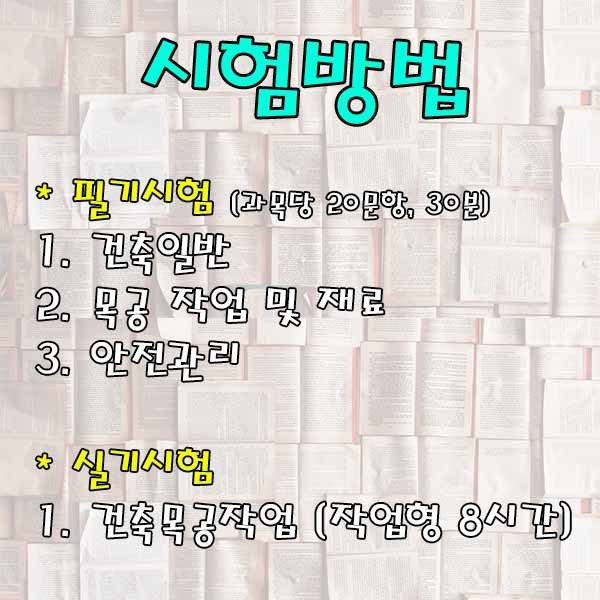 시험방법
* 필기시험 (과목당 20문항, 30분)
1. 건축일반
2. 목공 작업 및 재료
3. 안전관리
* 실기시험
1. 건축목공작업 (작업형 8시간)